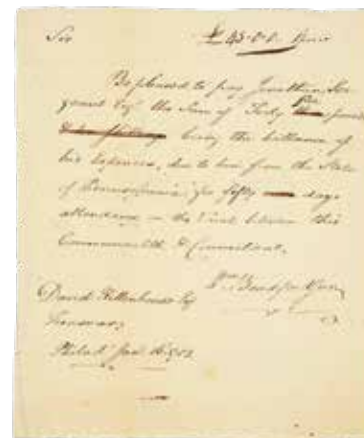 Sir £ 45-0-0
Be pleased to pay Jonathan Ser
geant Esqr the Sum of Forty five pounds
being the ballance of
his expences, due to him from the State
of Pennsylvania for fifty days
attendance on the trial between this
Commonwealth & Connecticut.
David Rittenhouse Esq
Treasurer
Philad Jan 16